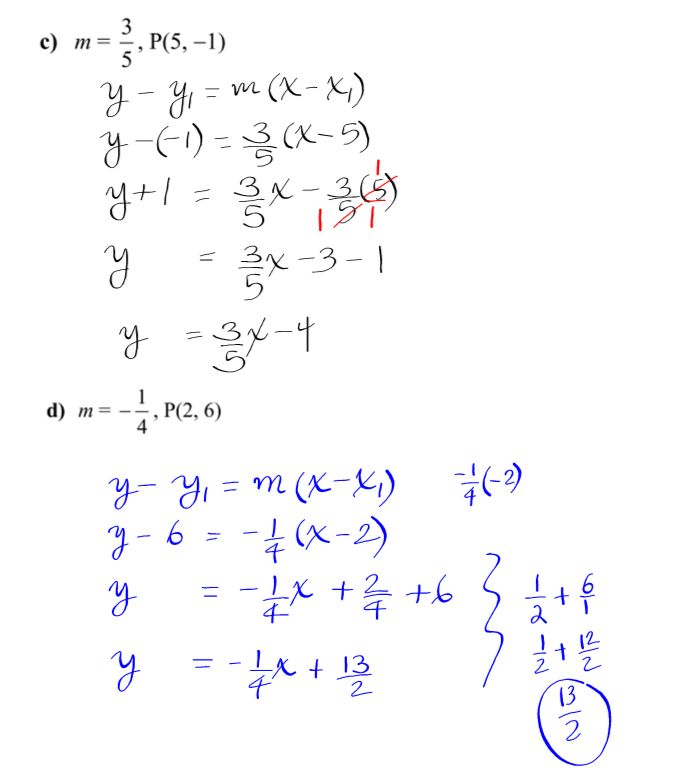 c) m = 3/5, P(5, −1)
y - y₁ = m(x - x₁)
y - (-1) = 3/5 (x - 5)
y + 1 = 3/5 x - 3/5 (5) 1 1 1
y = 3/5 x - 3 - 1
y = 3/5 x - 4
d) m = −1/4, P(2, 6)
y - y₁ = m(x - x₁) -1/4 (-2)
y - 6 = -1/4 (x - 2)
y = -1/4 x + 2/4 + 6 } 1/2 + 6/1
1/2 + 12/2
y = -1/4 x + 13/2
13/2